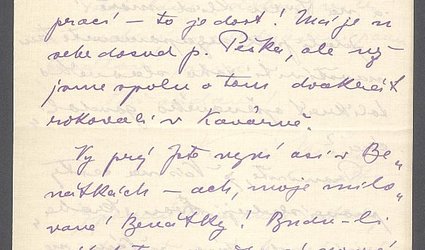 prací — to je dost! Má je u
sebe dosud p. Peška, ale už
jsme spolu o tom dvakrát
rokovali v Kavárně.
Vy prý jste nyní asi v Be„
nátkách — ach, moje milo„
vané Benátky! Budu-li